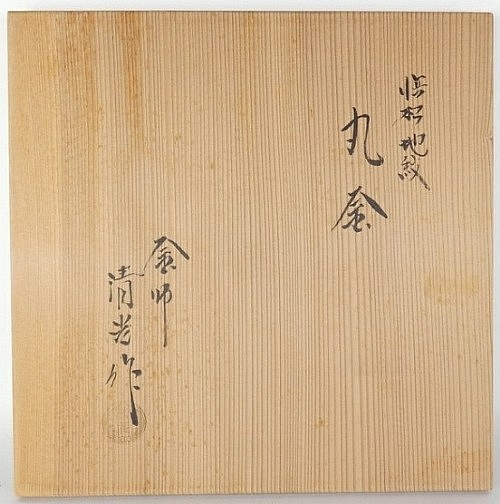 浜松地紋
丸釜
釜師
清光作